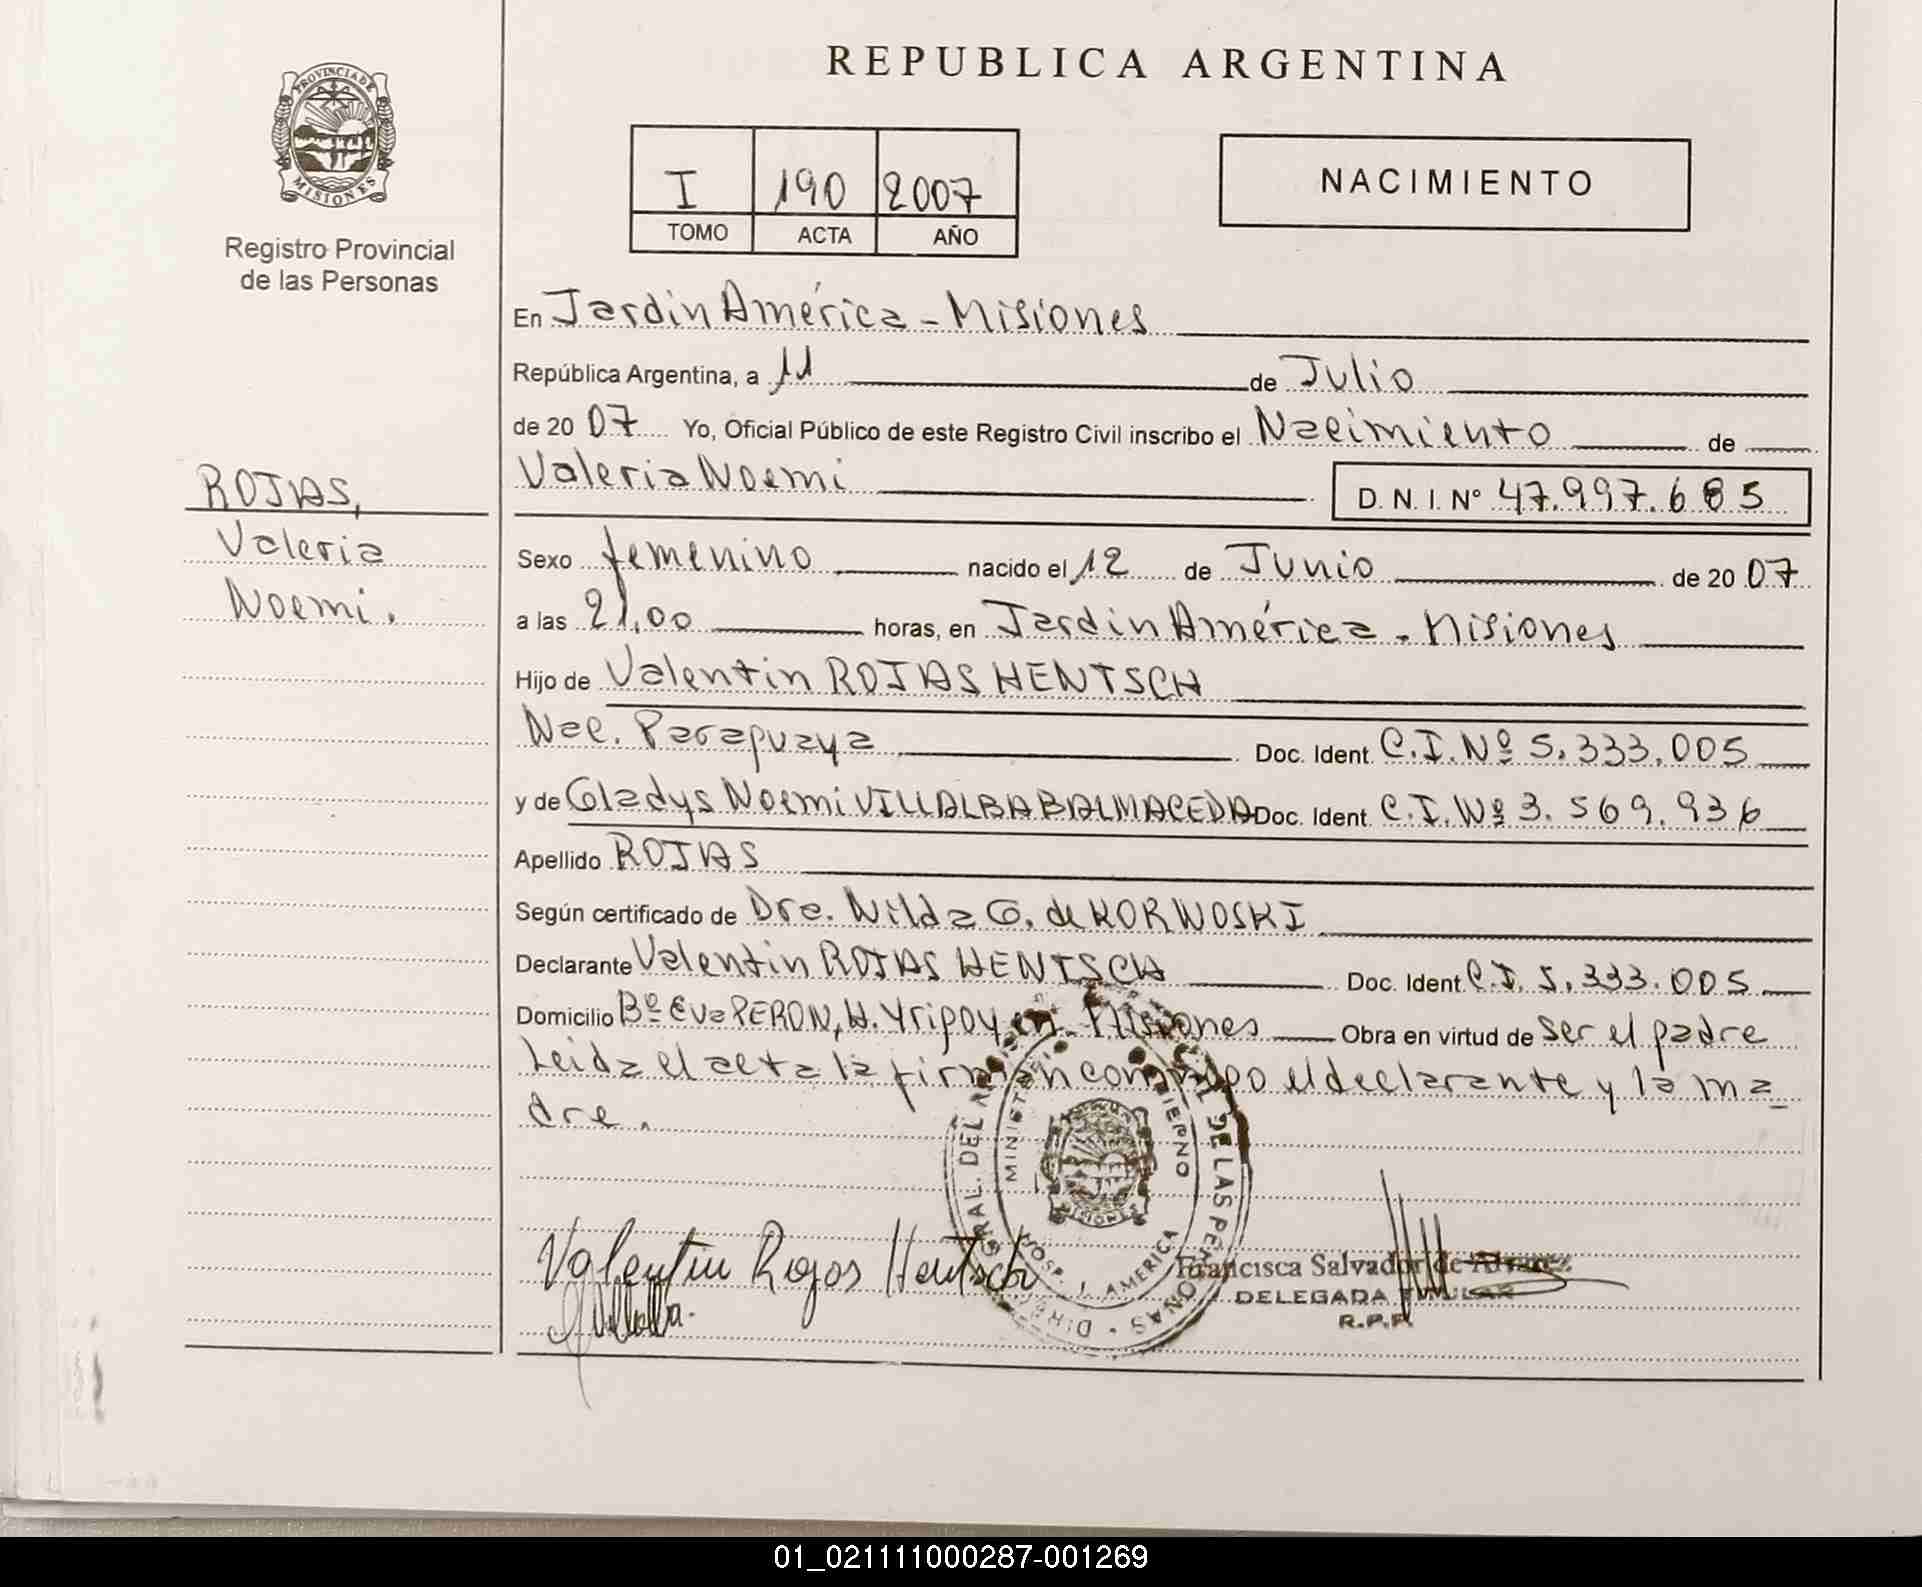 REPUBLICA ARGENTINA
PROVINCIA DE
MISIONES
Registro Provincial
de las Personas
I 190 2007
TOMO ACTA AÑO
NACIMIENTO
En Jardin América - Misiones
República Argentina, a 11 de Julio
de 20 07 Yo, Oficial Público de este Registro Civil inscribo el Nacimiento de
Valeria Noemi D. N. I. Nº 47.997.685
ROJAS,
Valeria
Noemi.
Sexo femenino nacido el 12 de Junio de 20 07
a las 21,00 horas, en Jardin América - Misiones
Hijo de Valentin ROJAS HENTSCH
Nac. Paraguaya Doc. Ident. C.I. Nº 5.333.005
y de Gladys Noemi VILLALBA BALMACEDA Doc. Ident. C.I. Nº 3.569.936
Apellido ROJAS
Según certificado de Dra. Nilda G. de KORWOSKI
Declarante Valentin ROJAS HENTSCH Doc. Ident. C.I. 5.333.005
Domicilio Bº Eva PERON, H. Yrigoyen - Misiones Obra en virtud de ser el padre
Leida el acta la firman conmigo el declarante y la ma
dre.
MINISTERIO GOBIERNO
DE LAS PERSONAS
MISIONES
HOSP. J. AMERICA
Valentin Rojas Hentsch
Francisca Salvador de Alvarez
DELEGADA TITULAR
R.P.P.
01_021111000287-001269